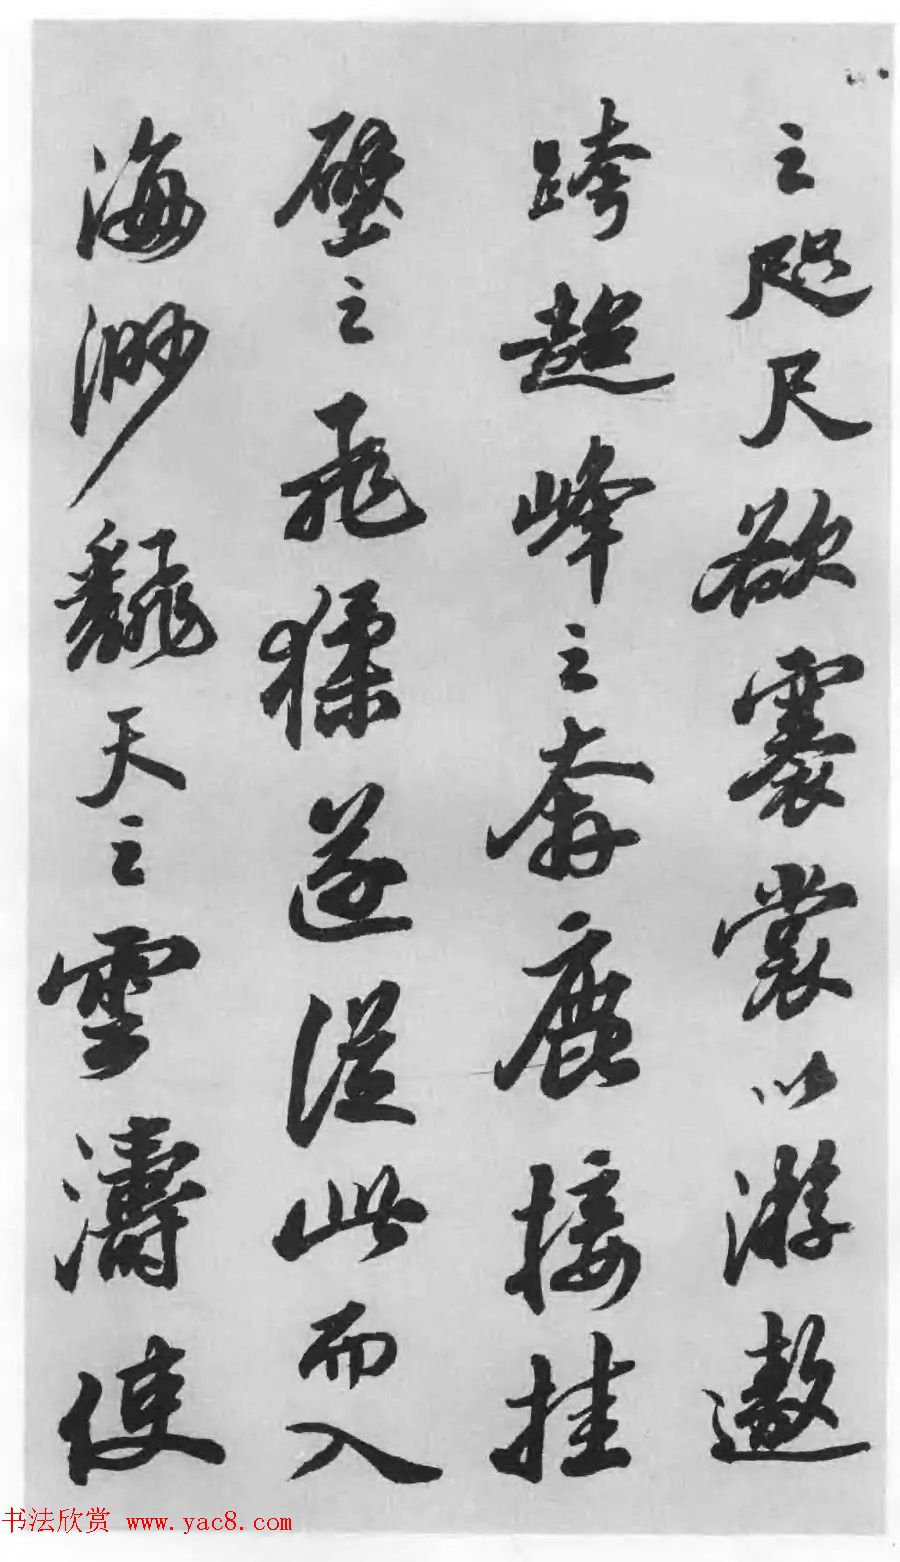 之咫尺欲褰裳以游遨
跨超峰之奔鹿接挂
壁之飛猱遂從此而入
海渺飜天之雲濤使
书法欣赏 www.yac8.com